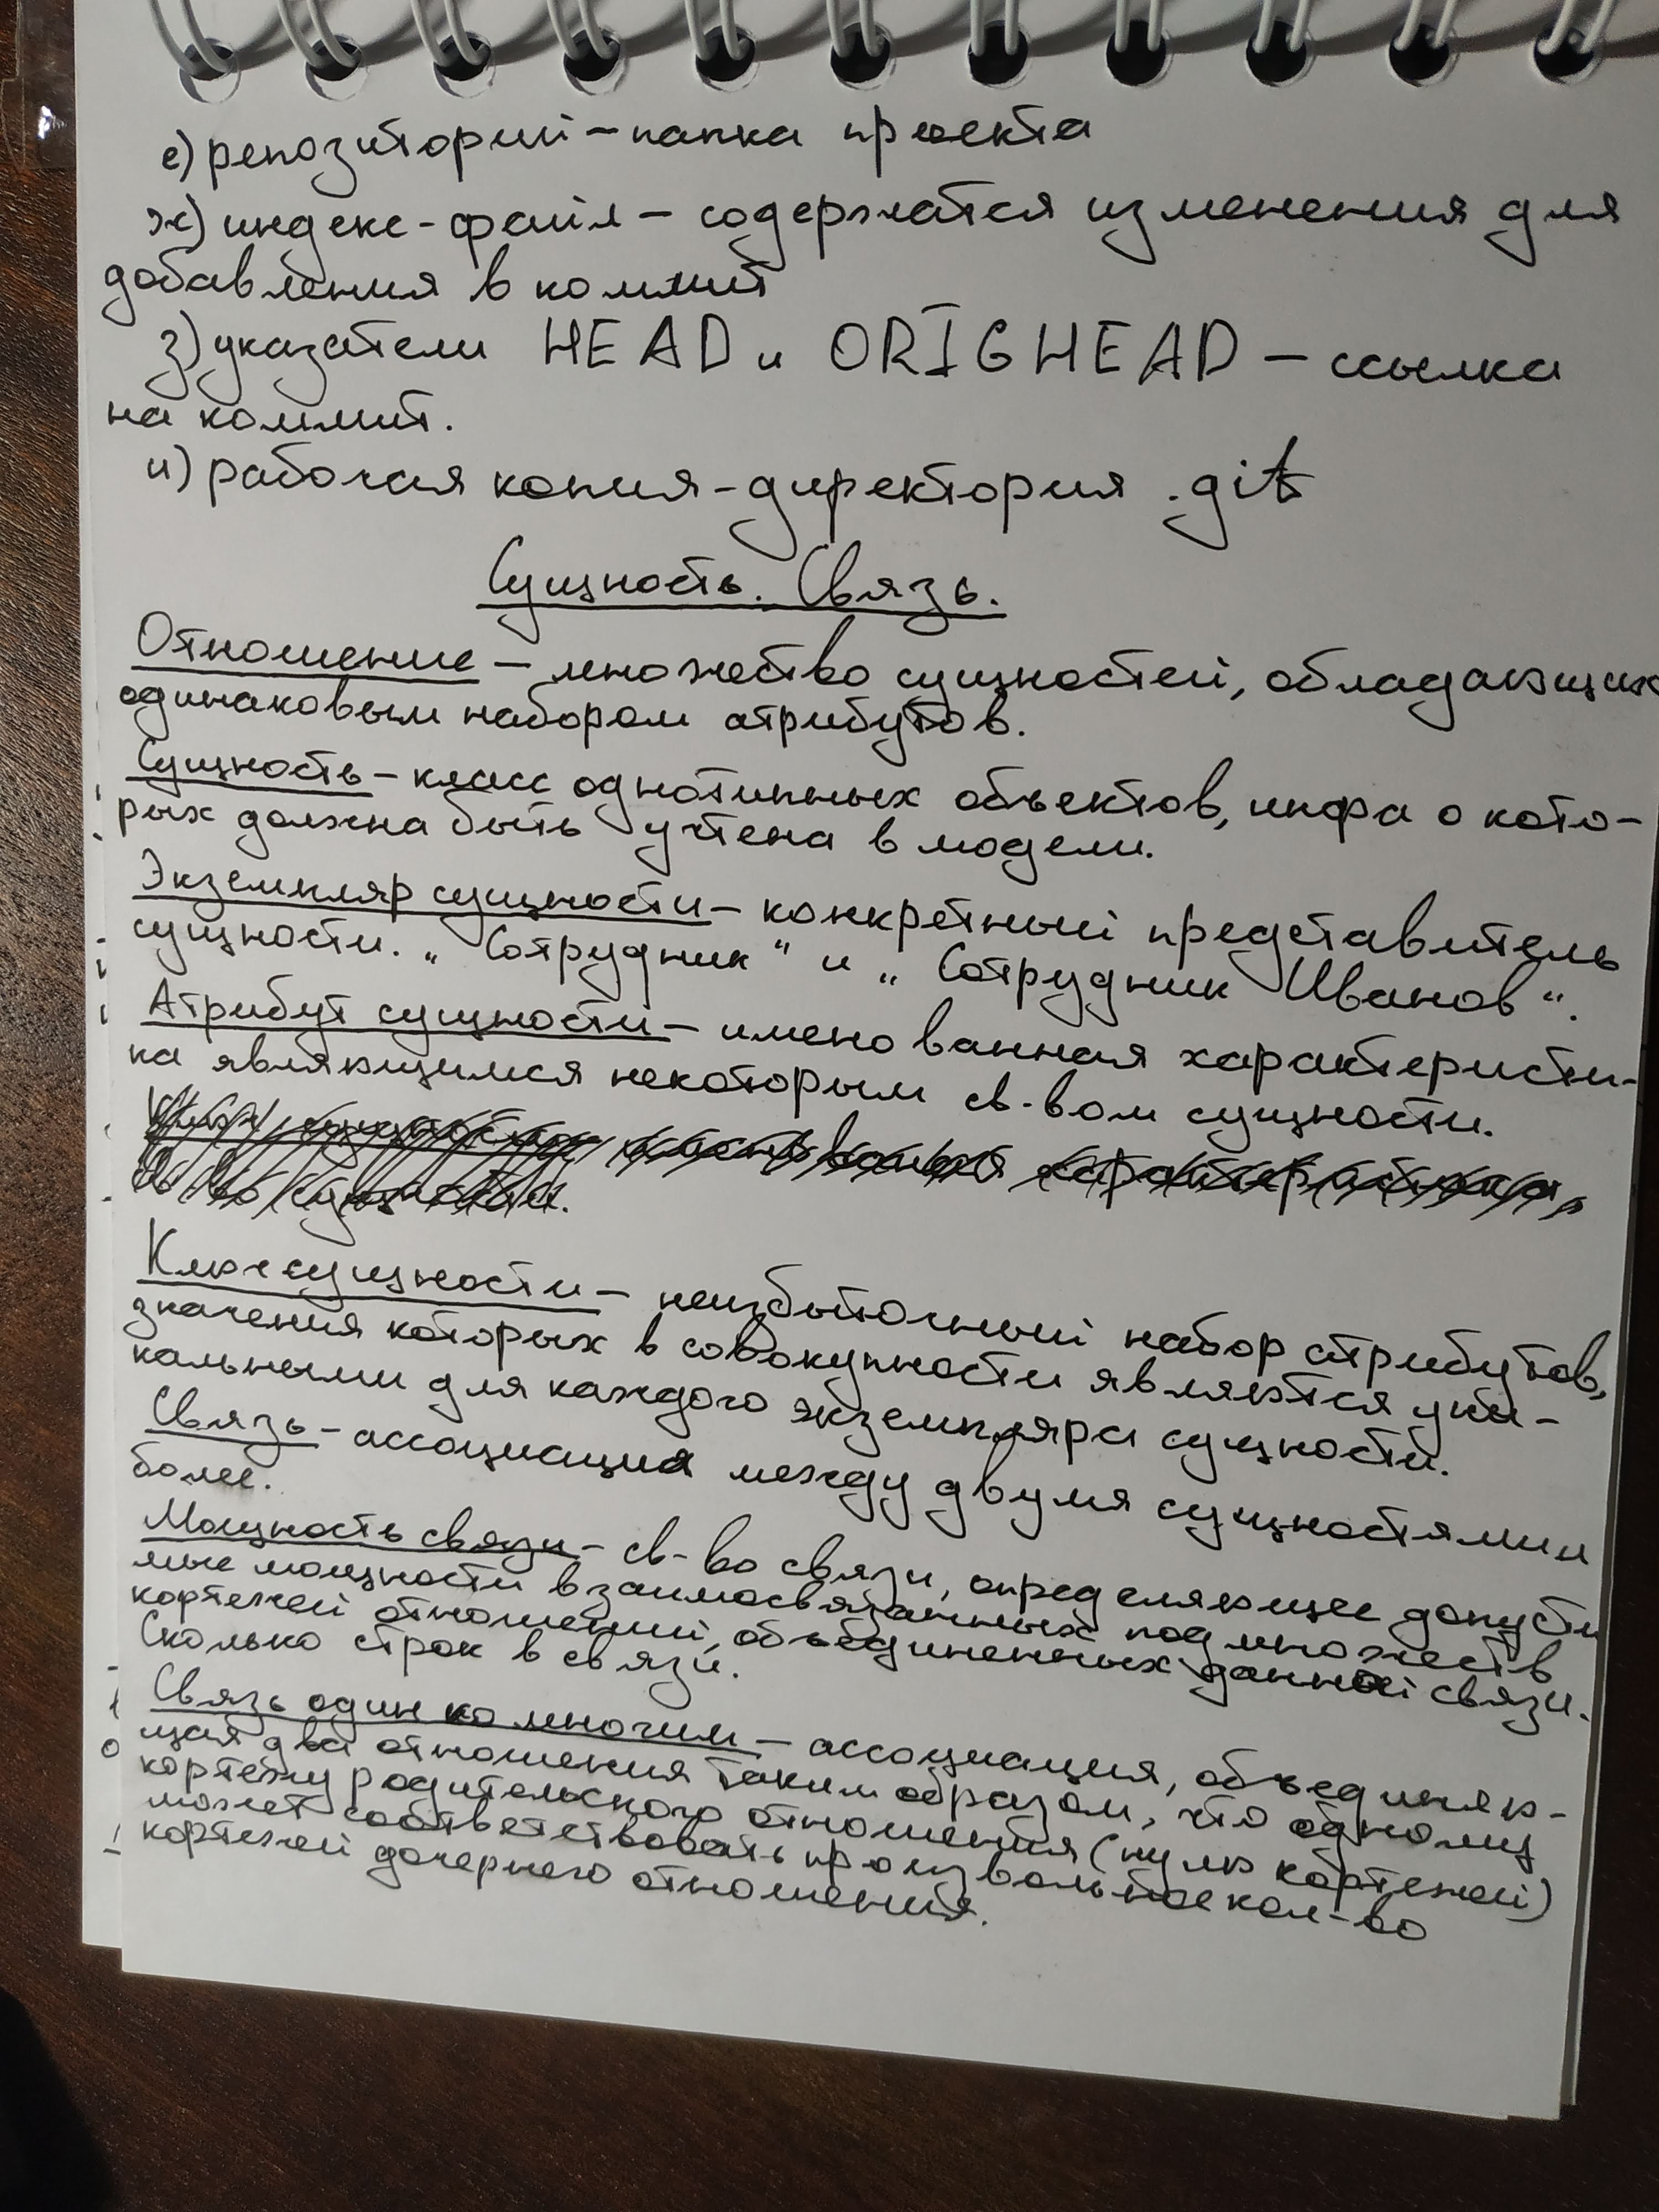 е) репозиторий – папка проекта
ж) индекс-файл – содержатся изменения для
добавления в коммит
з) указатели HEAD и ORIGHEAD – ссылка
на коммит.
и) рабочая копия – директория .git
Сущность. Связь.
Отношение – множество сущностей, обладающих
одинаковым набором атрибутов.
Сущность – класс однотипных объектов, инфа о кото-
рых должна быть учтена в модели.
Экземпляр сущности – конкретный представитель
сущности. „Сотрудник" и „Сотрудник Иванов".
Атрибут сущности – именованная характеристи-
ка являющимся некоторым св-вом сущности.
Ключ сущности – неизбыточный набор атрибутов,
значения которых в совокупности являются уни-
кальными для каждого экземпляра сущности.
Связь – ассоциация между двумя сущностями и
более.
Мощность связи – св-во связи, определяющее допусти
мые мощности взаимосвязанных подмножеств
кортежей отношений, объединенных данной связи.
Сколько строк в связи.
Связь один ко многим – ассоциация, объединяю-
щая два отношения таким образом, что одному
кортежу родительского отношения (нулю кортежей)
может соответствовать произвольное кол-во
кортежей дочернего отношения.